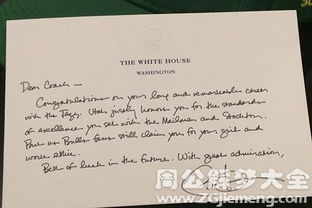 THE WHITE HOUSE
WASHINGTON
Dear Coach –
Congratulations on your long and remarkable career
with the Jazz. Utah justly honors you for the standards
of excellence you set with the Mailman and Stockton.
Bulls fans still claim you for your grit and
work ethic.
Best of luck in the future. With great admiration,
周公解梦大全
www.ZGjiemeng.com